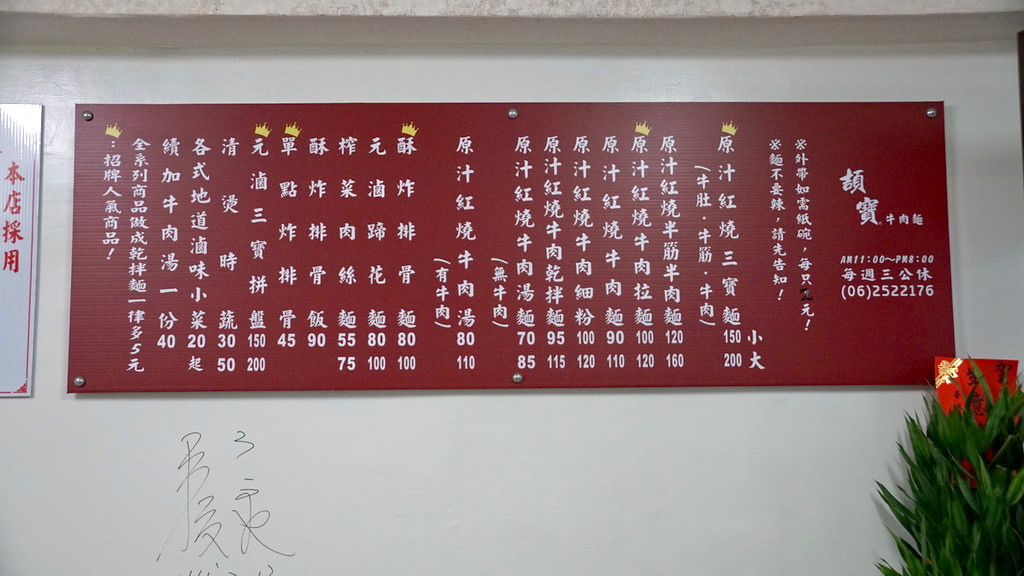 頡寶 牛肉麵
AM11:00~PM8:00
每週三公休
(06)2522176
※外帶如需紙碗，每只2元！
※麵不要辣，請先告知！
小 大
原汁紅燒三寶麵 150 200
(牛肚·牛筋·牛肉)
原汁紅燒半筋半肉麵 120 160
原汁紅燒牛肉拉麵 100 120
原汁紅燒牛肉麵 90 110
原汁紅燒牛肉細粉 100 120
原汁紅燒牛肉乾拌麵 95 115
原汁紅燒牛肉湯麵 70 85
(無牛肉)
原汁紅燒牛肉湯 80 110
(有牛肉)
酥炸排骨麵 80 100
元滷蹄花麵 80 100
榨菜肉絲麵 55 75
酥炸排骨飯 90
單點炸排骨 45
元滷三寶拼盤 150 200
清燙時蔬 30 50
各式地道滷味小菜 20起
續加牛肉湯一份 40
全系列商品做成乾拌麵一律多5元
：招牌人氣商品！
本店採用